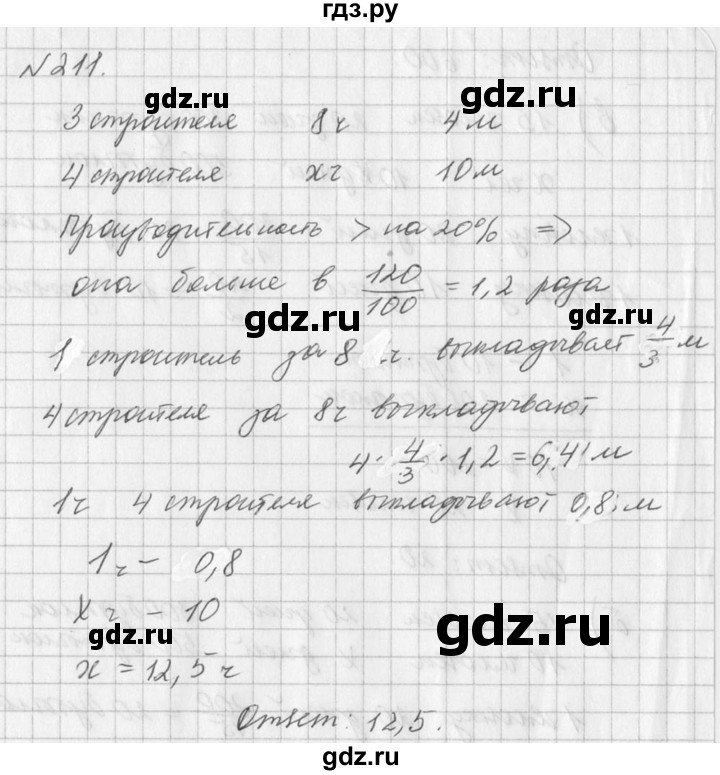 гдз.ру
№211.
gdz.ru
3 строителя 8ч 4 м
4 строителя xч 10м
gdz.ru
Производительность > на 20% =>
она больше в 120/100 = 1,2 раза
gdz.ru
gdz.ru
1 строитель за 8 ч. выкладывает 4/3 м
4 строителя за 8ч выкладывают
4 · 4/3 · 1,2 = 6,4 м
gdz.ru
gdz.ru
1ч 4 строителя выкладывают 0,8 м
1ч – 0,8
xч – 10
gdz.ru
gdz.ru
x = 12,5 ч
Ответ: 12,5.
gdz.ru